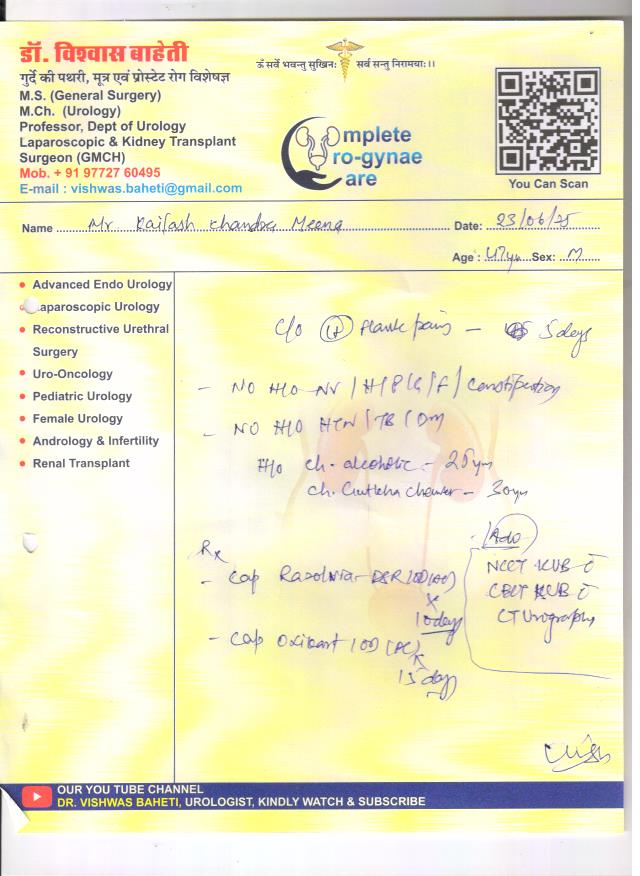 डॉ. विश्वास बाहेती
गुर्दे की पथरी, मूत्र एवं प्रोस्टेट रोग विशेषज्ञ
M.S. (General Surgery)
M.Ch. (Urology)
Professor, Dept of Urology
Laparoscopic & Kidney Transplant
Surgeon (GMCH)
Mob. + 91 97727 60495
E-mail : vishwas.baheti@gmail.com
ॐ सर्वे भवन्तु सुखिनः सर्व सन्तु निरामयाः।।
Complete
Uro-gynae
Care
You Can Scan
Name Mr Kailash Chandra Meena Date: 23/06/25
Age : 47yrs Sex: M
Advanced Endo Urology
Laparoscopic Urology
Reconstructive Urethral
Surgery
Uro-Oncology
Pediatric Urology
Female Urology
Andrology & Infertility
Renal Transplant
C/o (H) Flank pain - 5 days
- NO H/O NV / H / B / G / F / Constipation
- NO H/O HTN / TB / DM
H/O ch. alcoholic - 25 yrs
ch. Gutkha chewer - 30 yrs
Rx
- Cap DSR 1 OD (AC)
x
10 days
- Cap Oxibart 1 OD (PC)
x
15 days
Adv
NCCT KUB c̄
CECT KUB c̄
CT Urography
OUR YOU TUBE CHANNEL
DR. VISHWAS BAHETI, UROLOGIST, KINDLY WATCH & SUBSCRIBE